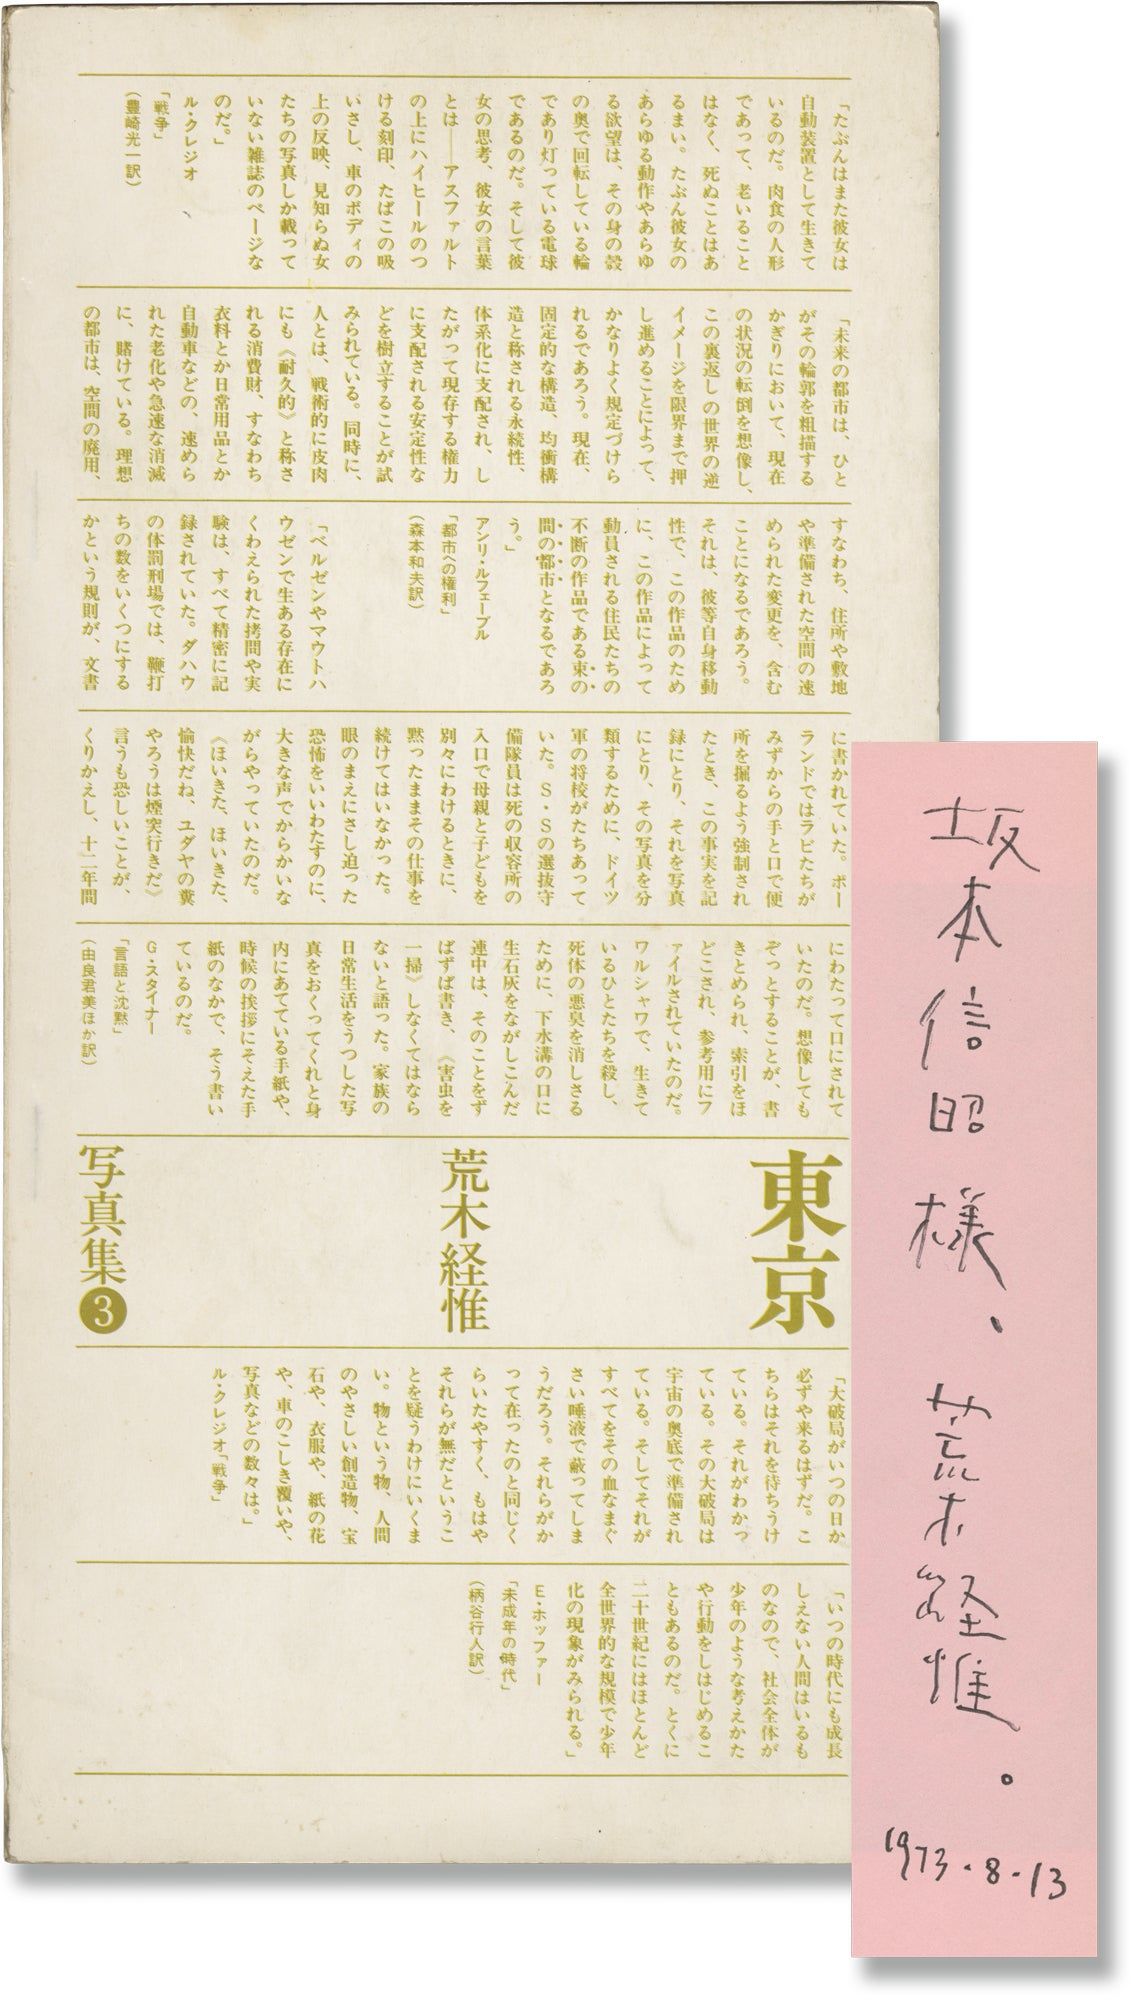 「たぶんはまた彼女は
自動装置として生きて
いるのだ。肉食の人形
であって、老いること
はなく、死ぬことはあ
るまい。たぶん彼女の
あらゆる動作やあらゆ
る欲望は、その身の殻
の奥で回転している輪
であり灯っている電球
であるのだ。そして彼
女の思考、彼女の言葉
とは――アスファルト
の上にハイヒールのつ
ける刻印、たばこの吸
いさし、車のボディの
上の反映、見知らぬ女
たちの写真しか載って
いない雑誌のページな
のだ。」
ル・クレジオ
「戦争」
(豊崎光一訳)
「未来の都市は、ひと
がその輪郭を粗描する
かぎりにおいて、現在
の状況の転倒を想像し、
この裏返しの世界の逆
イメージを限界まで押
し進めることによって、
かなりよく規定づけら
れるであろう。現在、
固定的な構造、均衡構
造と称される永続性、
体系化に支配され、し
たがって現存する権力
に支配される安定性な
どを樹立することが試
みられている。同時に、
人とは、戦術的に皮肉
にも《耐久的》と称さ
れる消費財、すなわち
衣料とか日常用品とか
自動車などの、速めら
れた老化や急速な消滅
に、賭けている。理想
の都市は、空間の廃用、
すなわち、住所や敷地
や準備された空間の速
められた変更を、含む
ことになるであろう。
それは、彼等自身移動
性で、この作品のため
に、この作品によって
動員される住民たちの
不断の作品である束の
間の都市となるであろ
う。」
アンリ・ルフェーブル
「都市への権利」
(森本和夫訳)
「ベルゼンやマウトハ
ウゼンで生ある存在に
くわえられた拷問や実
験は、すべて精密に記
録されていた。ダハウ
の体罰刑場では、鞭打
ちの数をいくつにする
かという規則が、文書
に書かれていた。ポー
ランドではラビたちが
みずからの手と口で便
所を掘るよう強制され
たとき、この事実を記
録にとり、それを写真
にとり、その写真を分
類するために、ドイツ
軍の将校がたちあって
いた。S・Sの選抜守
備隊員は死の収容所の
入口で母親と子どもを
別々にわけるときに、
黙ったままその仕事を
続けてはいなかった。
眼のまえにさし迫った
恐怖をいいわたすのに、
大きな声でからかいな
がらやっていたのだ。
《ほいきた、ほいきた、
愉快だね、ユダヤの糞
やろうは煙突行きだ》
言うも恐しいことが、
くりかえし、十二年間
にわたって口にされて
いたのだ。想像しても
ぞっとすることが、書
きとめられ、索引をほ
どこされ、参考用にフ
ァイルされていたのだ。
ワルシャワで、生きて
いるひとたちを殺し、
死体の悪臭を消しさる
ために、下水溝の口に
生石灰をながしこんだ
連中は、そのことをす
ばずば書き、《害虫を
一掃》しなくてはなら
ないと語った。家族の
日常生活をうつした写
真をおくってくれと身
内にあてている手紙や、
時候の挨拶にそえた手
紙のなかで、そう書い
ているのだ。
G・スタイナー
「言語と沈黙」
(由良君美ほか訳)
東京
荒木経惟
写真集❸
「大破局がいつの日か
必ずや来るはずだ。こ
ちらはそれを待ちうけ
ている。それがわかっ
ている。その大破局は
宇宙の奥底で準備され
ている。そしてそれが
すべてをその血なまぐ
さい唾液で蔽ってしま
うだろう。それらがか
って在ったのと同じく
らいたやすく、もはや
それらが無だというこ
とを疑うわけにいくま
い。物という物、人間
のやさしい創造物、宝
石や、衣服や、紙の花
や、車のこしき覆いや、
写真などの数々は。」
ル・クレジオ「戦争」
「いつの時代にも成長
しえない人間はいるも
のなので、社会全体が
少年のような考えかた
や行動をしはじめるこ
ともあるのだ。とくに
二十世紀にはほとんど
全世界的な規模で少年
化の現象がみられる。」
E・ホッファー
「未成年の時代」
(柄谷行人訳)
坂本信昭様、荒木経惟。
1973・8・13